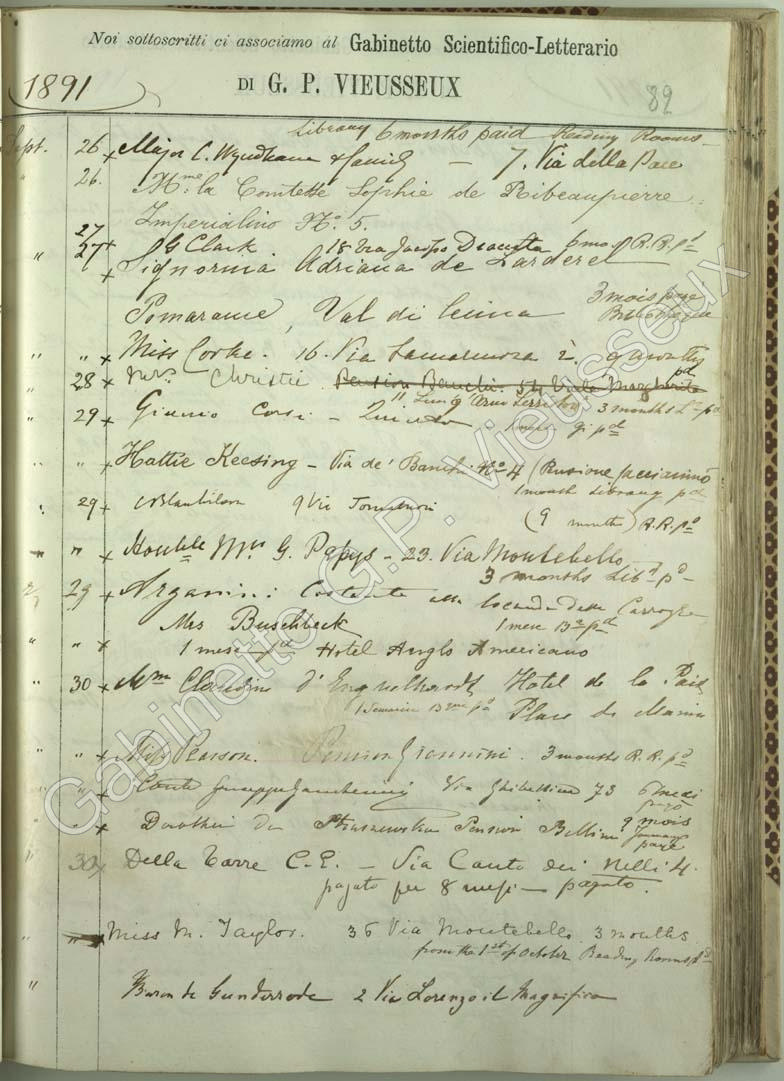 Noi sottoscritti ci associamo al Gabinetto Scientifico-Letterario
DI G. P. VIEUSSEUX
1891
82
Library 6 months paid Reading Rooms
Sept. 26 x Major C. Wyndham & family — 7. Via della Pace
" 26. Mme. la Comtesse Sophie de Ribeaupierre
Imperialino No. 5.
27
" 27 x G Clark 18 Via Jacopo Diacceto 6 mo. R.R. pd
x Signorina Adriana de Larderel
3 mois payé
Pomarance, Val di Cecina
" " x Miss Corke. 16. Via 2. 9 months pd
" 28 x Mrs. Christie Pension Bianchi. 54 Viale Margherita
" Lung'Arno Serristori 3 months pd
" 29 x Corsi — pd
" " x Hattie Keesing — Via de' Banchi No 4 (Pensione
1 month Library pd
29 x 9 Via Tornabuoni (9 months) R.R. pd
" x Honble Mrs G. Pepys — 23. Via Montebello
3 months Liby pd —
29 x Costante alla locanda delle Carrozze
1 mese pd
" " x Mrs Buschbeck
1 mese pd Hotel Anglo Americano
" 30 x Mme Claudine d'Engelhardt Hotel de la Paix
1 Semaine pd Place de Manin
" " x Miss Pearson. Pension Giannini. 3 months R.R. pd
" " x Conte Giuseppe Via Ghibellina 73 6 mesi
pagò
" x Dorothea Pension Bellini 9 mois
payé
30 x Della Torre C. E. — Via Canto dei Nelli 4.
pagato per 8 mesi — pagato.
" x Miss M. Taylor. 36 Via Montebello 3 months
from the 1st of October Reading Rooms pd
" Baron de Gunderrode 2 Via Lorenzo il Magnifico
Gabinetto G.P. Vieusseux